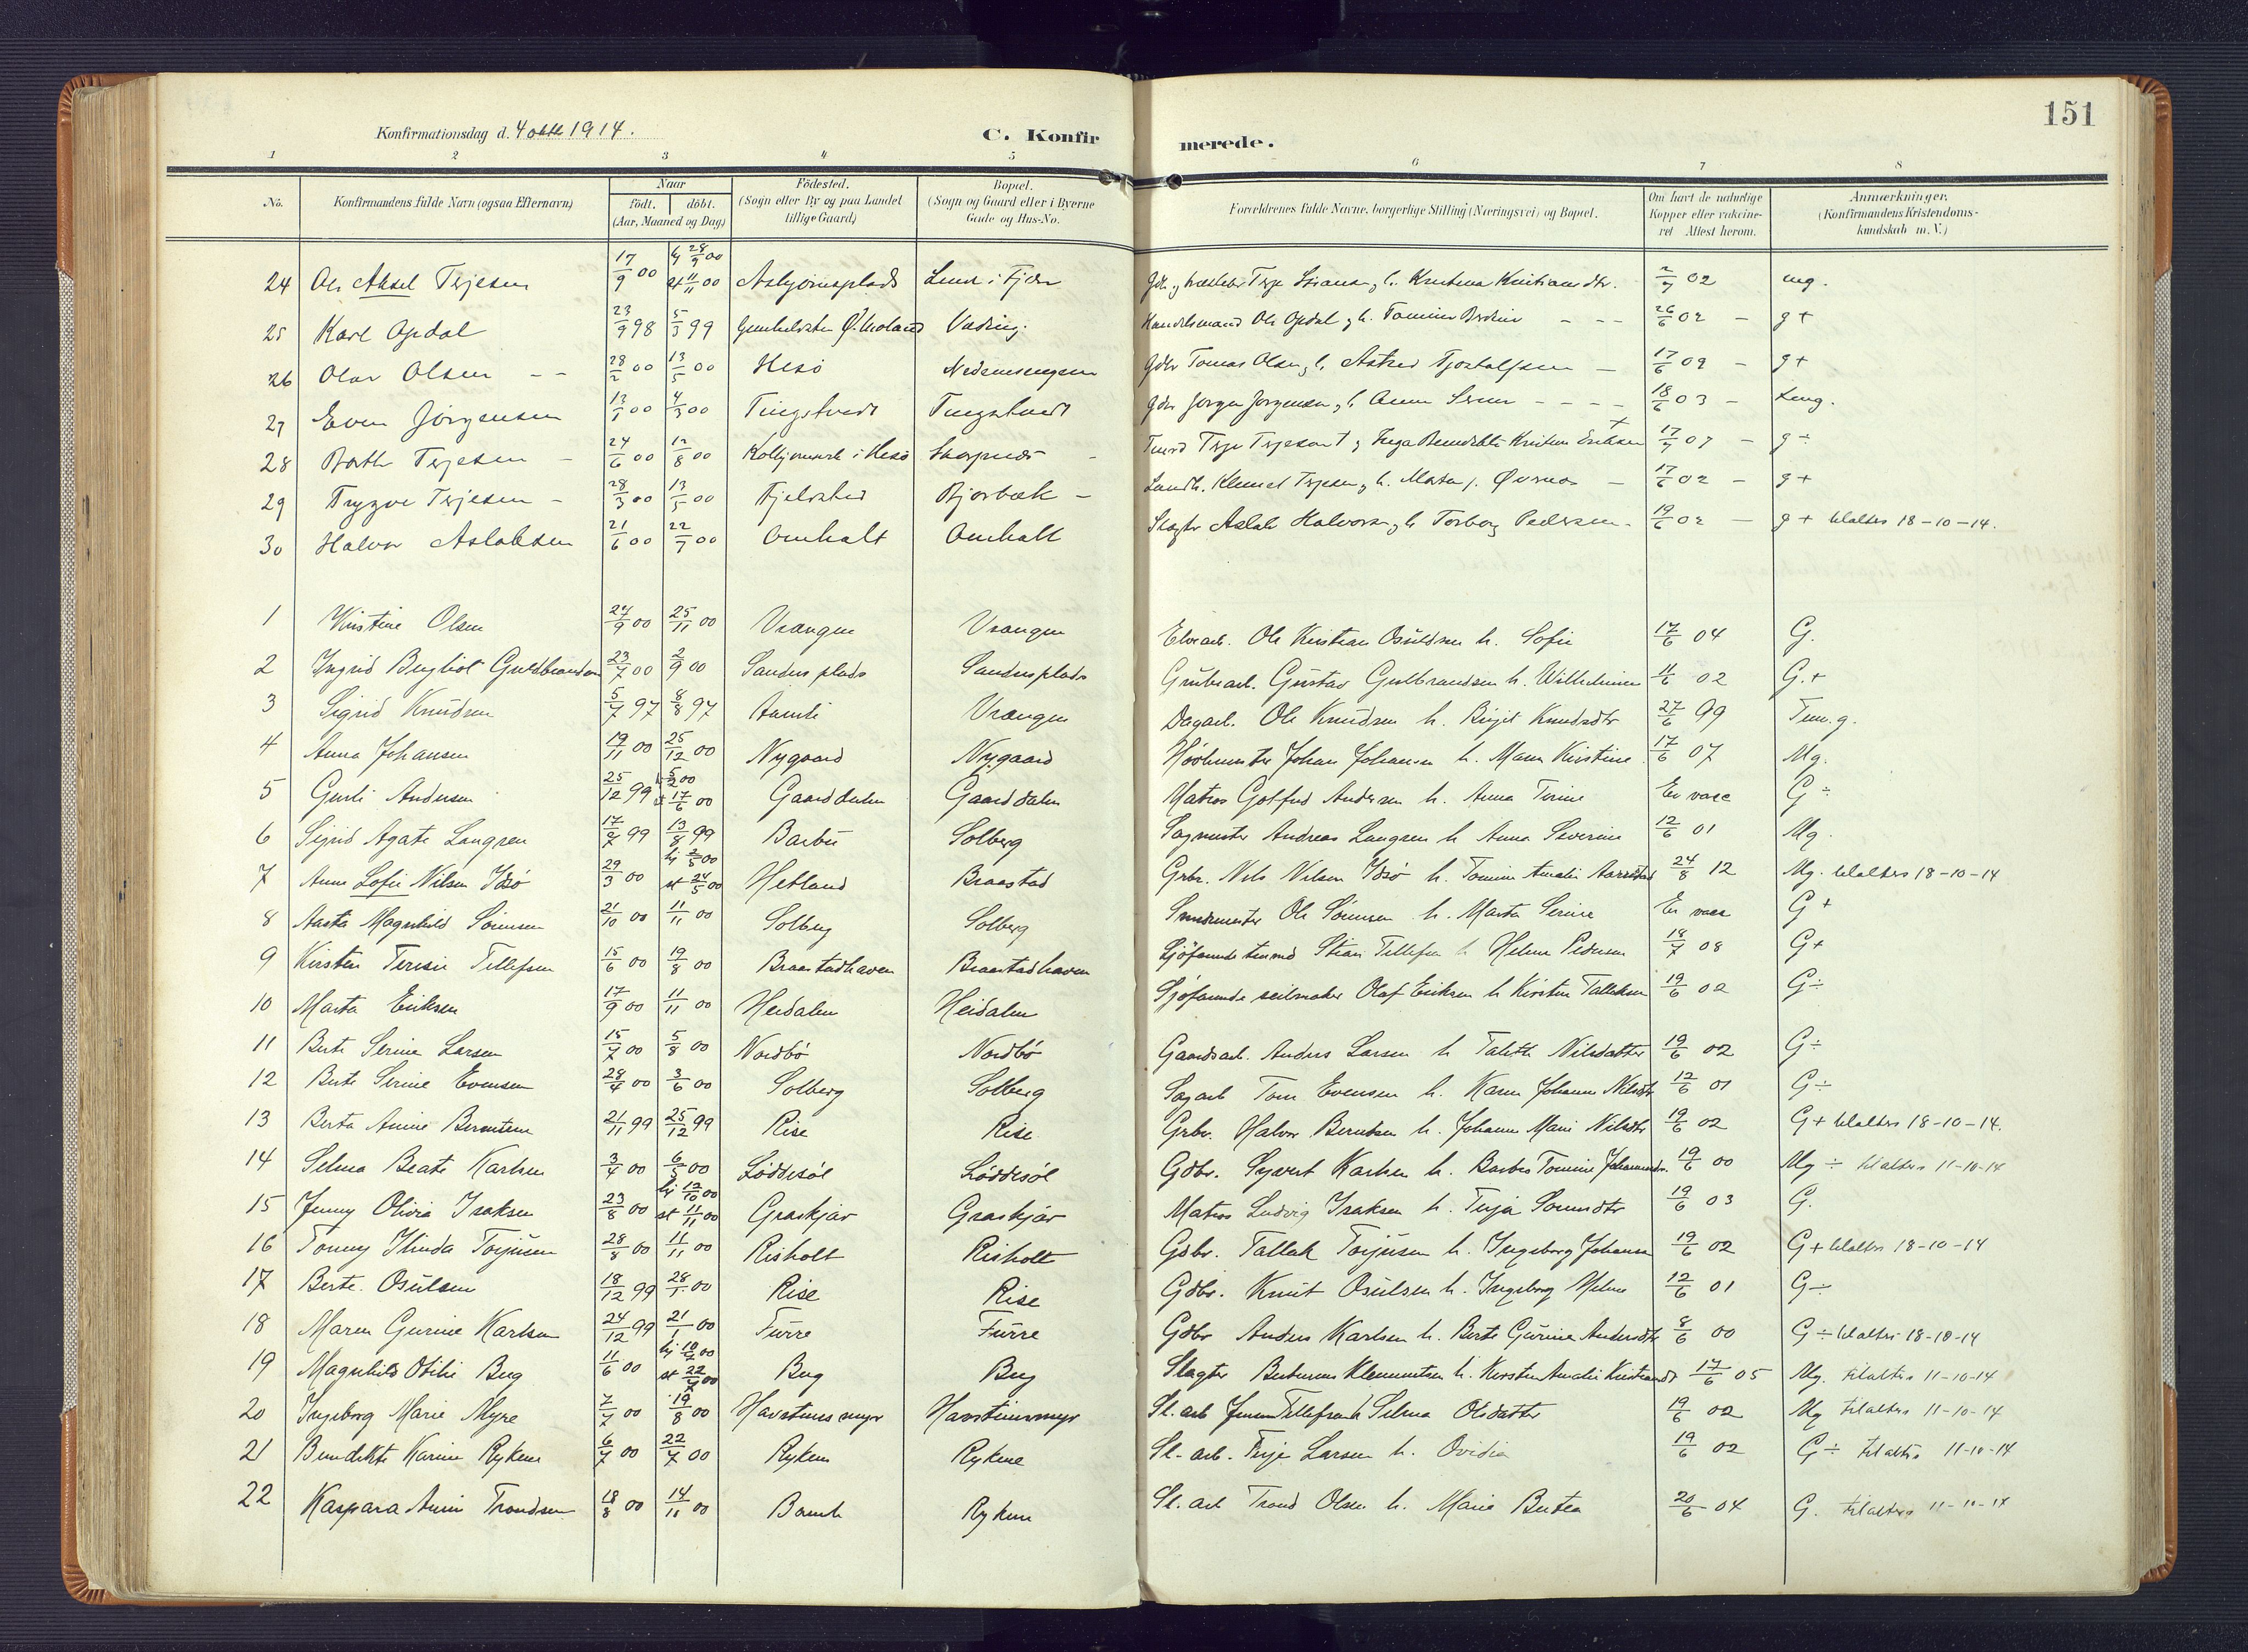 151
Konfirmationsdag d. 4 oktb 1914.
C. Konfirmerede.
1 2 3 4 5 6 7 8
No. Konfirmandens fulde Navn (ogsaa Efternavn) Naar födt. döbt. (Aar, Maaned og Dag) Födested. (Sogn eller By og paa Landet tillige Gaard) Bopæl. (Sogn og Gaard eller i Byerne Gade og Hus-No. Forældrenes fulde Navne, borgerlige Stilling (Næringsvei) og Bopæl. Om havt de naturlige Kopper eller vakcineret Attest herom. Anmærkninger. (Konfirmandens Kristendomskundskab m. V.)
24 Ole Aksel Terjesen 17/9 00 hj 28/9 00 st 11/11 00 Asbjørnsplads Lund i Fjære Terje h. Kristiansdtr. 2/7 02 mg.
25 Karl Opdal 23/9 98 5/3 99 Ø. Moland Handelsmand Ole Opdal h. Tomine 26/6 02 – g +
26 Olav Olsen 28/2 00 13/5 00 Hesø Gdbr Tomas Olsen h. Astrid 17/6 02 – g +
27 Even Jørgensen 13/1 00 4/3 00 Tingstvedt Tingstvedt Gdbr Jørgen Jørgensen h. Anne 18/6 03 –
28 Terjesen 24/6 00 12/8 00 i Hesø Tmd Terje Terjesen † Inga Kristine Eriksen 17/7 07 – g ÷
29 Trygve Terjesen 28/3 00 13/5 00 Fjelvedt Bjorbæk Klemet Terjesen h. 17/6 02 – g +
30 Halvor Aslaksen 21/6 00 22/7 00 Omholt Omholt Slagter Aslak Halvorsen h. Torborg Pedersen 19/6 02 – g + tilalters 18-10-14.
1 Kristine Olsen 24/9 00 25/11 00 Vrangen Vrangen Ole Kristian Osuldsen h. Sofie 17/6 04 G.
2 Ingrid Bergliot Guldbrandsen 23/7 00 2/9 00 Sandens plads Sandens plads Grubearb. Gustav Gulbrandsen h. Wilhelmine 02 G. +
3 Sigrid Knudsen 5/7 97 8/8 97 Aamli Vrangen Dagarb. Ole Knudsen h. Birgit Knudsdtr 27/6 99 Tem. g.
4 Anna Johansen 19/11 00 25/12 00 Nygaard Nygaard Johan Johansen h. Maren Kirstine 17/6 07 Mg.
5 Gunli Andersen 25/12 99 hj 5/2 00 st 17/6 00 Gaarddalen Gaarddalen Matros Gotfred Andersen h. Anna Terine Er vacc G ÷
6 Sigrid Agate Langren 17/7 99 13/8 99 Barbu Solberg Sagmester Andreas Langren h. Anna Severine 12/6 01 Mg.
7 Anne Sofie Nilsen Idsø 29/3 00 hj 2/5 00 st 24/5 00 Hetland Braastad Grbr. Nils Nilsen Idsø h. Tomine Amalie 24/8 12 Mg. tilalters 18-10-14
8 Aasta Magnhild Sörensen 21/10 00 11/11 00 Solberg Solberg Ole Sörensen h. Marta Serine Er vacc G +
9 Kirsten Teresie Tellefsen 15/6 00 19/8 00 Braastadhaven Braastadhaven Sjöfarende tmmd Stian Tellefsen h. Helene Pedersen 18/7 08 G +
10 Marta Eriksen 17/9 00 11/11 00 Heidalen Heidalen Sjöfarende seilmaker Olaf Eriksen h. Kirstine Tallaksen 19/6 02 G ÷
11 Berte Serine Larsen 15/7 00 5/8 00 Nordbö Nordbö Gaardsarb. Anders Larsen h. Nilsdatter 19/6 02 G ÷
12 Berte Serine Evensen 28/4 00 3/6 00 Solberg Solberg Sagarb Tom Evensen h. Karen Johanne Nilsdtr 12/6 01 G ÷
13 Berta Amine Berntsen 21/11 99 25/12 99 Rise Rise Grbr. Halvor Berntsen h. Johanne Marie Nilsdtr 19/6 02 G + tilalters 18-10-14.
14 Selma Beate Karlsen 3/4 00 6/5 00 Löddesöl Löddesöl Gdbr. Syvert Karlsen h. Barbro Tomine 19/6 00 Mg ÷ tilalters 11-10-14
15 Jenny Olivia Isaksen 23/8 00 hj 12/10 00 st 11/11 00 Graskjær Graskjær Matros Ludvig Isaksen h. Terja 19/6 03 G.
16 Tonny Hinda Torjusen 28/8 00 11/11 00 Risholt Risholt Gdbr. Tallak Torjusen h. Ingeborg Johansen 19/6 02 G + tilalters 18-10-14
17 Berte Osulsen 18/12 99 28/1 00 Rise Rise Gdbr. Knut Osulsen h. Ingeborg Helene 12/6 01 G ÷
18 Maren Gurine Karlsen 24/12 99 21/1 00 Furre Furre Gdbr Anders Karlsen h. Berte Gurine Andersdtr 8/6 00 G ÷ tilalters 18-10-14
19 Magnhild Otilie Berg 11/6 00 hj 00 st 22/7 00 Berg Berg Slagter Klemmetsen h. Kirsten Amalie 17/6 05 Mg. tilalters 11-10-14
20 Ingeborg Marie Myre 7/7 00 19/8 00 Havstensmyr Havstensmyr Sl. arb Jens Tellefsen h. Selma Olsdatter 19/6 02 Mg tilalters 11-10-14
21 Bendikte Karine Rykene 6/7 00 22/7 00 Rykene Rykene Sl. arb. Terje Larsen h. Ovidia 19/6 02 G ÷ tilalters 11-10-14
22 Kaspara Trondsen 18/8 00 14/10 00 Rykene Sl. arb Trond Olsen h. Marie Bertea 20/6 04 G. tilalters 11-10-14